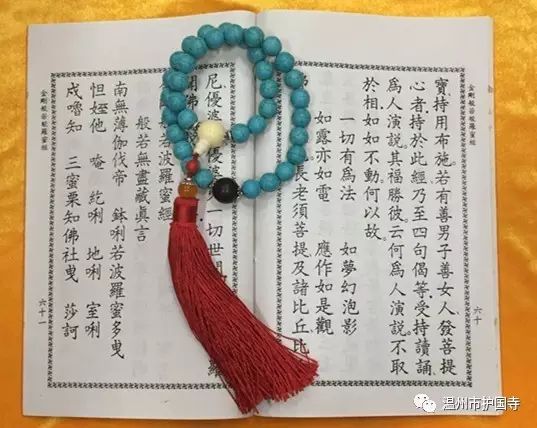 金剛般若波羅蜜經
六十
寶，持用布施。若有善男子善女人，發菩提
心者，持於此經，乃至四句偈等，受持讀誦，
為人演說，其福勝彼。云何為人演說，不取
於相，如如不動。何以故。
一切有為法 如夢幻泡影
如露亦如電 應作如是觀
長老須菩提及諸比丘比
尼優婆 優婆 一切世 羅
聞佛
若波羅蜜經
般若無盡藏真言
南無薄伽伐帝 鉢唎若波羅蜜多曳
怛姪他 唵 紇唎 地唎 室唎
戍嚕知 三蜜栗知佛社曳 莎訶
金剛般若波羅蜜經
六十一
温州市护国寺